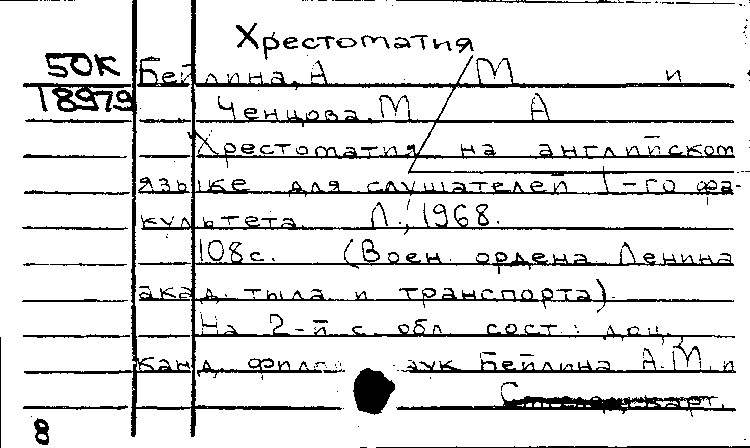 Хрестоматия
50К Бейлина, А М и
18979 Ченцова, М А
Хрестоматия на английском
языке для слушателей 1-го фа-
культета Л., 1968.
108с. (Воен. ордена Ленина
акад. тыла и транспорта).
На 2-й с. обл. сост.: доц.,
канд. филол. наук Бейлина А.М. и
карт.
8